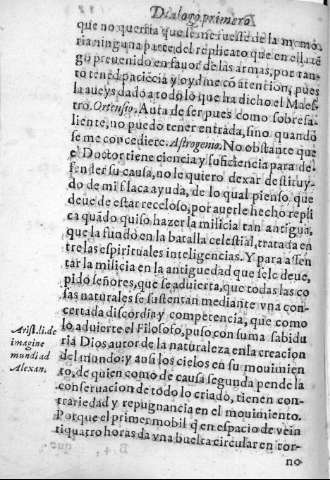 Dialogo primero
que no querria que se me fuesse de la memo-
ria ninguna parte del replicato que en ella tē
go preuenido en fauor de las armas, por tan-
to tened paciēcia y oydme cō atention, pues
la aueys dado a todo lo que ha dicho el Maes-
tro. Ortensio. Aura de ser pues como sobresa-
liente, no puedo tener entrada, sino quando
se me concediere. Astrogenio. No obstante que
el Doctor tiene ciencia y suficiencia para de-
fender su causa, no le quiero dexar destituy-
do de mi flaca ayuda, de lo qual pienso que
deue de estar receloso, por auerle hecho repli
ca quādo quiso hazer la milicia tan antigua,
que la fundò en la batalla celestial, tratada en
tre las espirituales inteligencias. Y para assen
tar la milicia en la antiguedad que se le deue,
pido señores, que se aduierta, que todas las co
sas naturales se sustentan mediante vna con-
certada discordia y competencia, que como
lo aduierte el Filosofo, puso con suma sabidu
ria Dios autor de la naturaleza en la creacion
del mundo: y assi los cielos en su mouimien
to, de quien como de causa segunda pende la
conseruacion de todo lo criado, tienen con-
trariedad y repugnancia en el mouimento.
Porque el primer mobil q̄ en espacio de vein
tiquatro horas da vna buelta circular en tor-
no
Arist. li. de
imagine
mundi ad
Alexan.